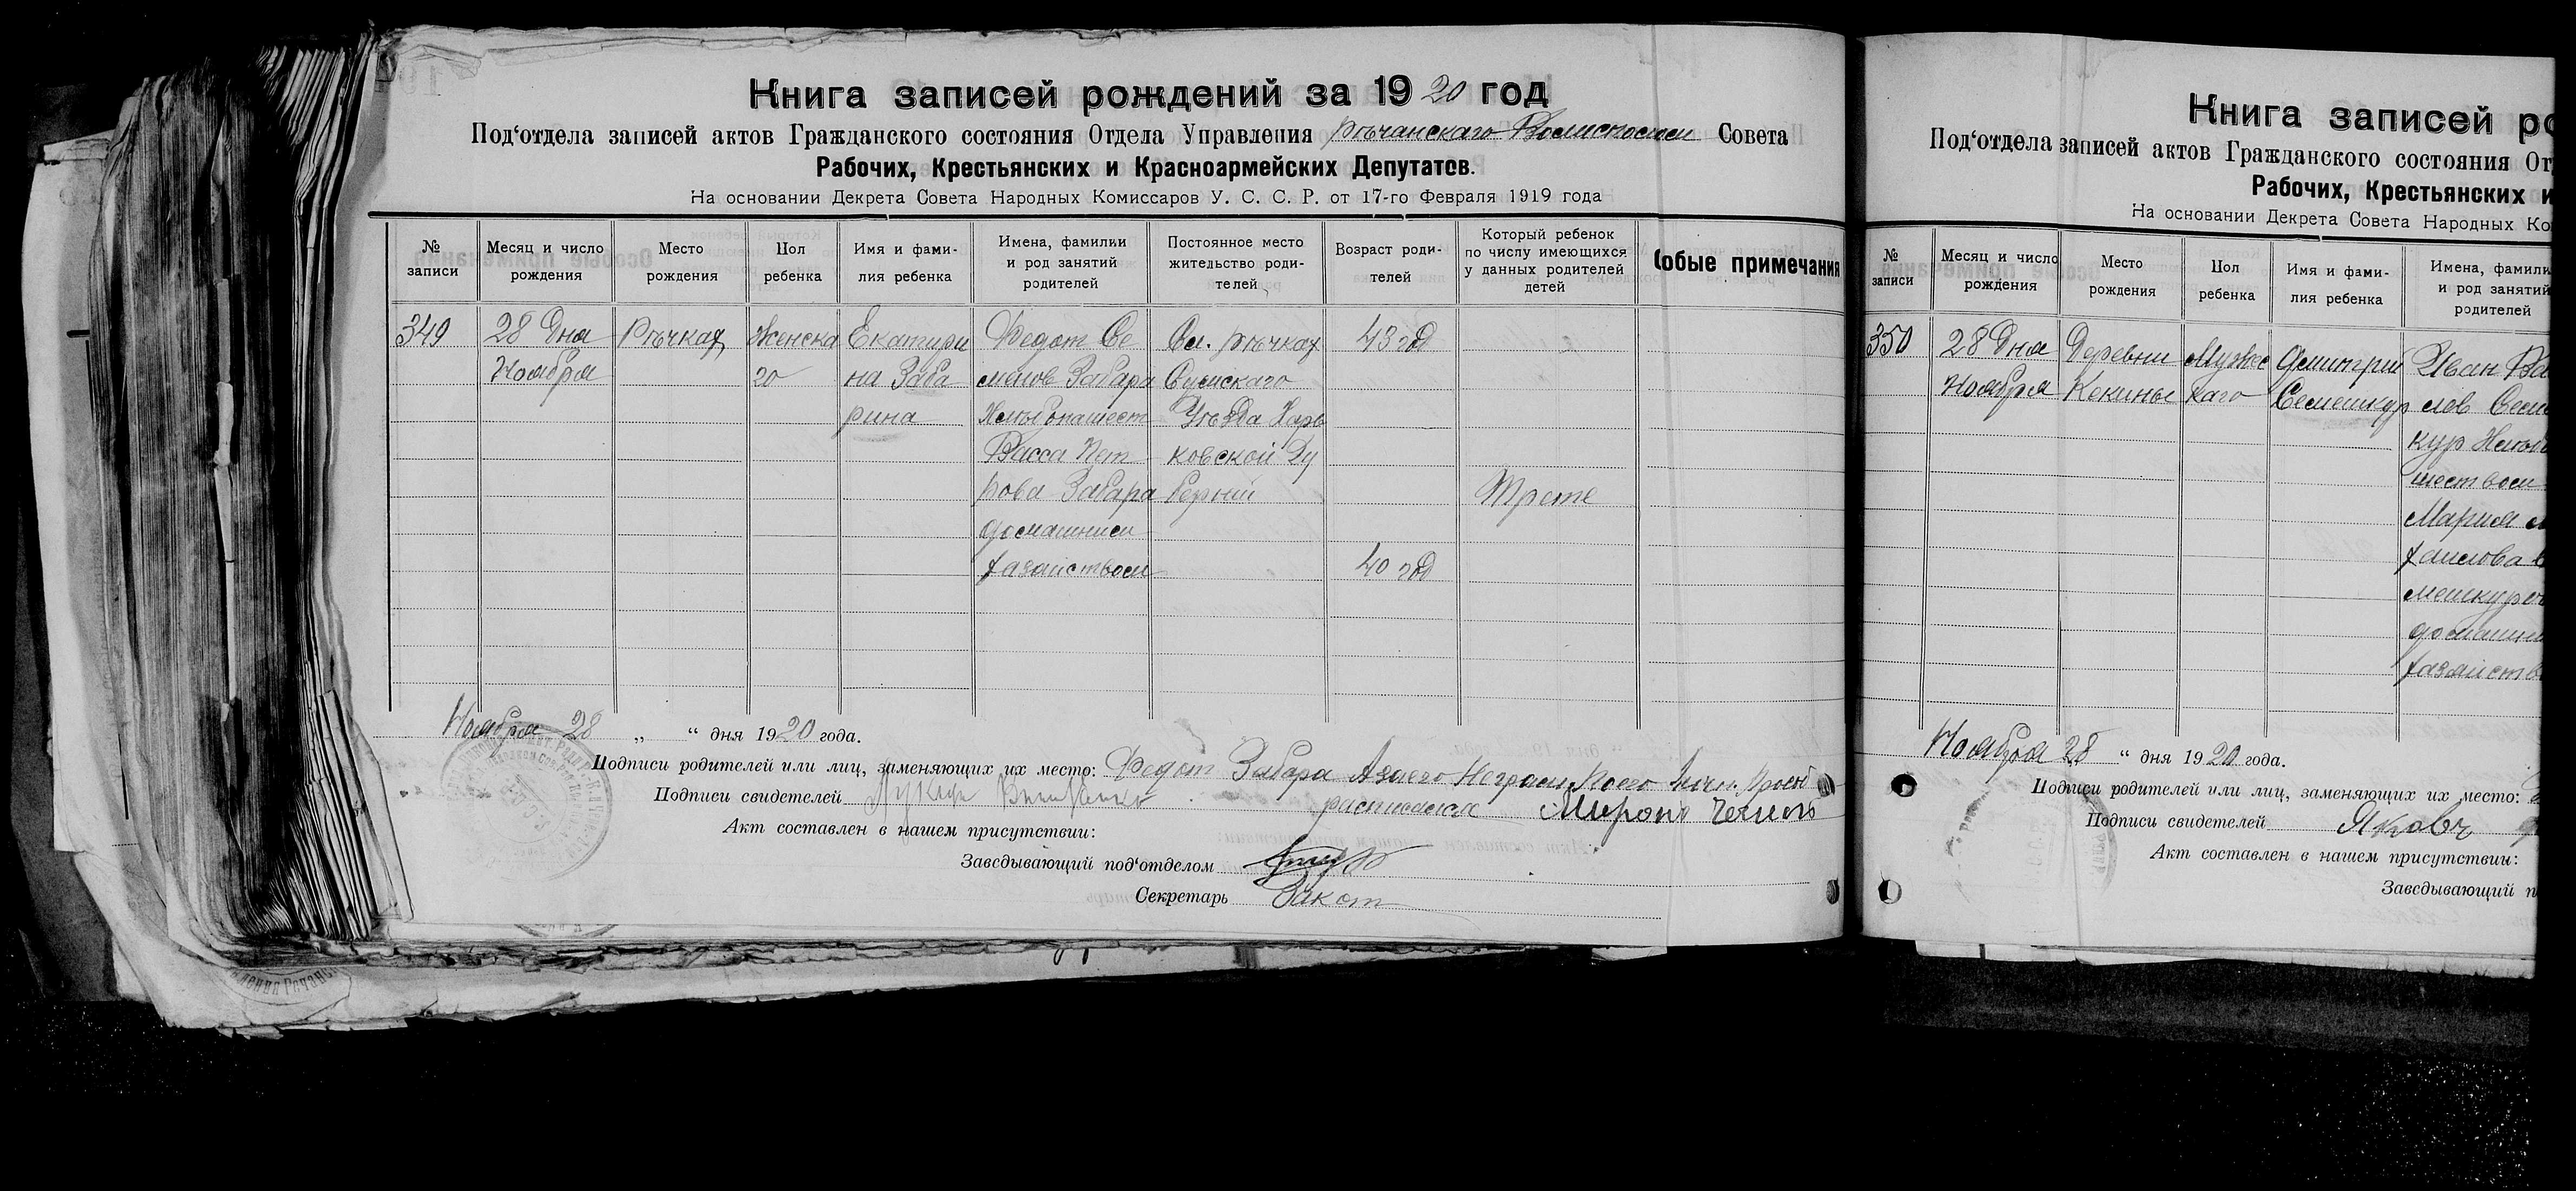 Книга записей рождений за 1920 год
Под‘отдела записей актов Гражданского состояния Отдела Управления Рѣчанскаго Волисполком Совета
Рабочих, Крестьянских и Красноармейских Депутатов.
На основании Декрета Совета Народных Комиссаров У. С. С. Р. от 17-го Февраля 1919 года
№ записи
Месяц и число рождения
Место рождения
Пол ребенка
Имя и фами-
лия ребенка
Имена, фамилии
и род занятий
родителей
Постоянное место
жительство роди-
телей
Возраст роди-
телей
Который ребенок
по числу имеющихся
у данных родителей
детей
собые примечания
349
28 Дня
Ноября
Рѣчках
Женска
го
Екатери
на Заба
рина
Федот Се
менов Забара
Хлѣбопашест
Васса Пет
рова Забара
домашнием
хазайством
Сл. Рѣчках
Сумскаго
Уѣзда Харь
ковской Гу
бернии
43 год
40 год
Трете
Ноября 28 „ “ дня 1920 года.
Подписи родителей или лиц, заменяющих их место: Федот Забара А за его Неграм
Подписи свидетелей
расписался Мирон
Акт составлен в нашем присутствии:
Заведывающий под‘отделом
Секретарь
Книга записей ро
Под‘отдела записей актов Гражданского состояния От
Рабочих, Крестьянских и
На основании Декрета Совета Народных Ко
№ записи
Месяц и число
рождения
Место
рождения
Пол
ребенка
Имя и фами-
лия ребенка
Имена, фамили
и род занятий
родителей
350
28 Дня
Ноября
Деревни
Кекины
Мужс
каго
Дмитрий
Семешкур
Иван Ва
лов Сем
кур Хлѣб
шеством
Мария М
хаилова С
мешкур
домашни
хазайств
Ноября 28 “ дня 1920 года.
Подписи родителей или лиц, заменяющих их место:
Подписи свидетелей Яковъ
Акт составлен в нашем присутствии:
Заведывающий п